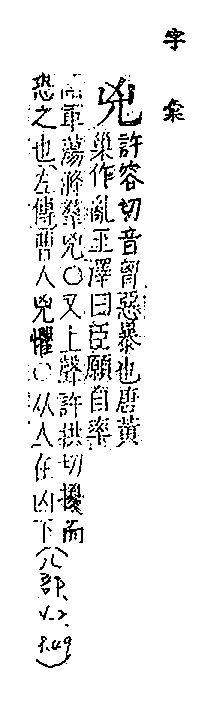 字彙
兇許容切音匈惡暴也唐黃
巢作亂王澤曰臣願自率
諸軍蕩滌羣兇○又上聲許拱切擾而
恐之也左傳曹人兇懼○从人在凶下(八部, V.2, P.49)